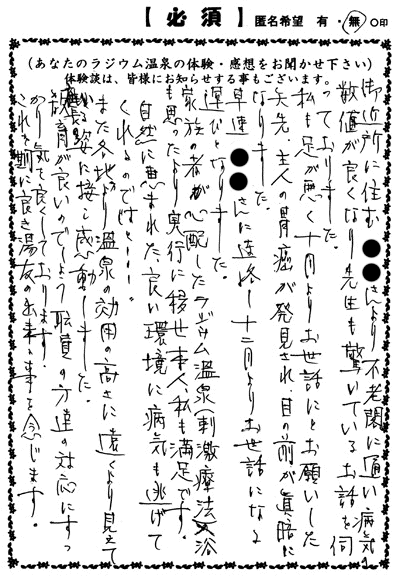 【必須】 匿名希望 有・無 ○印
(あなたのラジウム温泉の体験・感想をお聞かせ下さい)
体験談は、皆様にお知らせする事もございます。
御近所に住む●●さんより不老閣に通い病気の
数値が良くなり先生も驚いているお話を伺
っておりました。
私も足が悪く十月よりお世話にとお願いした
矢先、主人の胃癌が発見され、目の前が真暗に
なりました。
早速●●さんに連絡し十二月よりお世話になる
運びとなりました。
家族の者が心配したラジウム温泉(刺激療法)入浴
も思ったより実行に移せ本人、私も満足です。
自然に恵まれた良い環境に病気も逃げて
くれるのではと…。
また各地より温泉の効用の高さに遠くより見えて
いる姿に接し感動しました。
教育が良いのでしょう職員の方達の対応にすっ
かり気を良くしております。
これを期に良き湯友の出来る事を念じます。